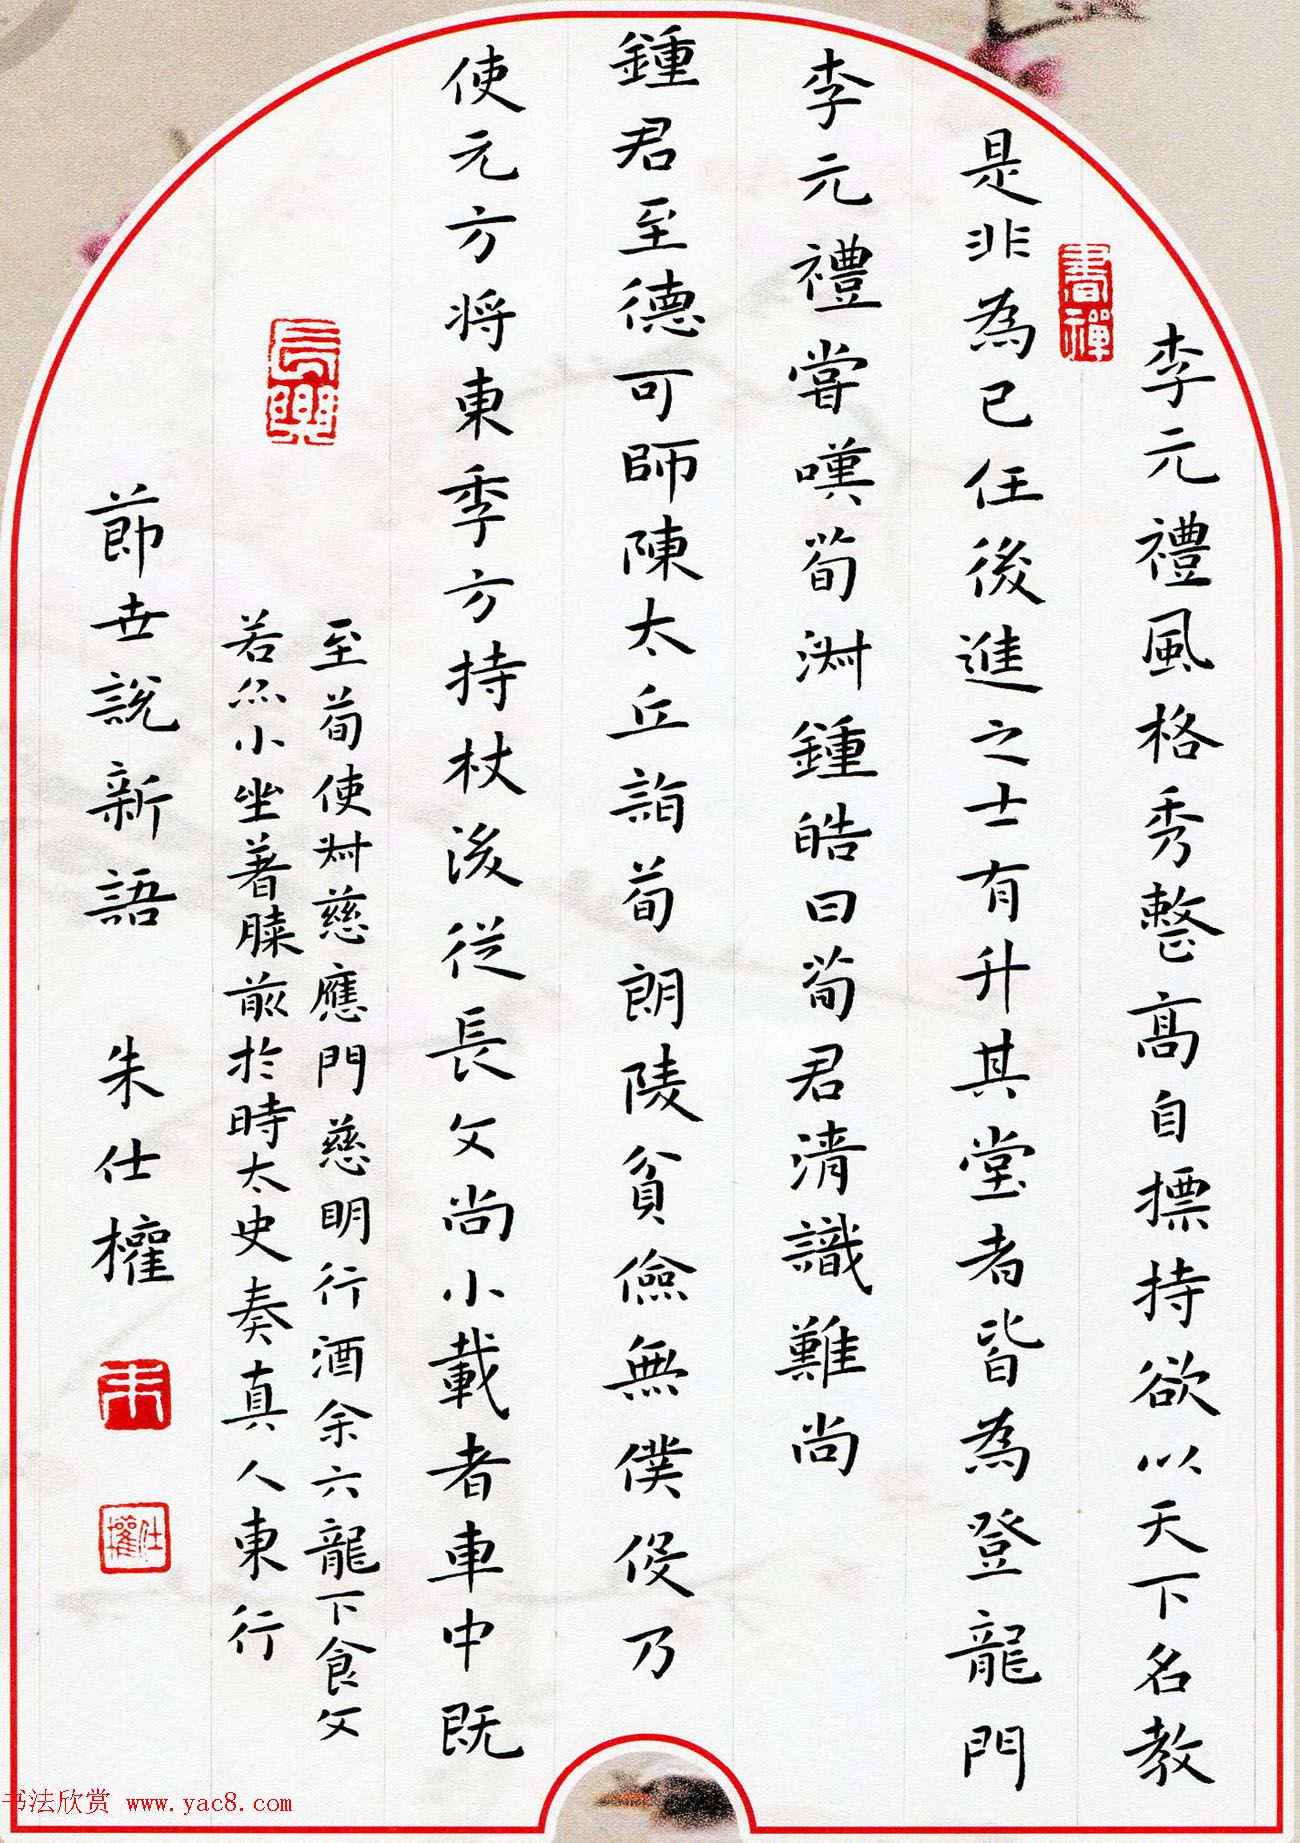 李元禮風格秀整高自標持欲以天下名教
是非為己任後進之士有升其堂者皆為登龍門
李元禮嘗嘆荀淑鍾皓曰荀君清識難尚
鍾君至德可師陳太丘詣荀朗陵貧儉無僕役乃
使元方將東季方持杖後從長文尚小載著車中既
至荀使叔慈應門慈明行酒余六龍下食文
若亦小坐著膝前於時太史奏真人東行
節世說新語 朱仕權
書禪
長興
朱
仕權
书法欣赏 www.yac8.com